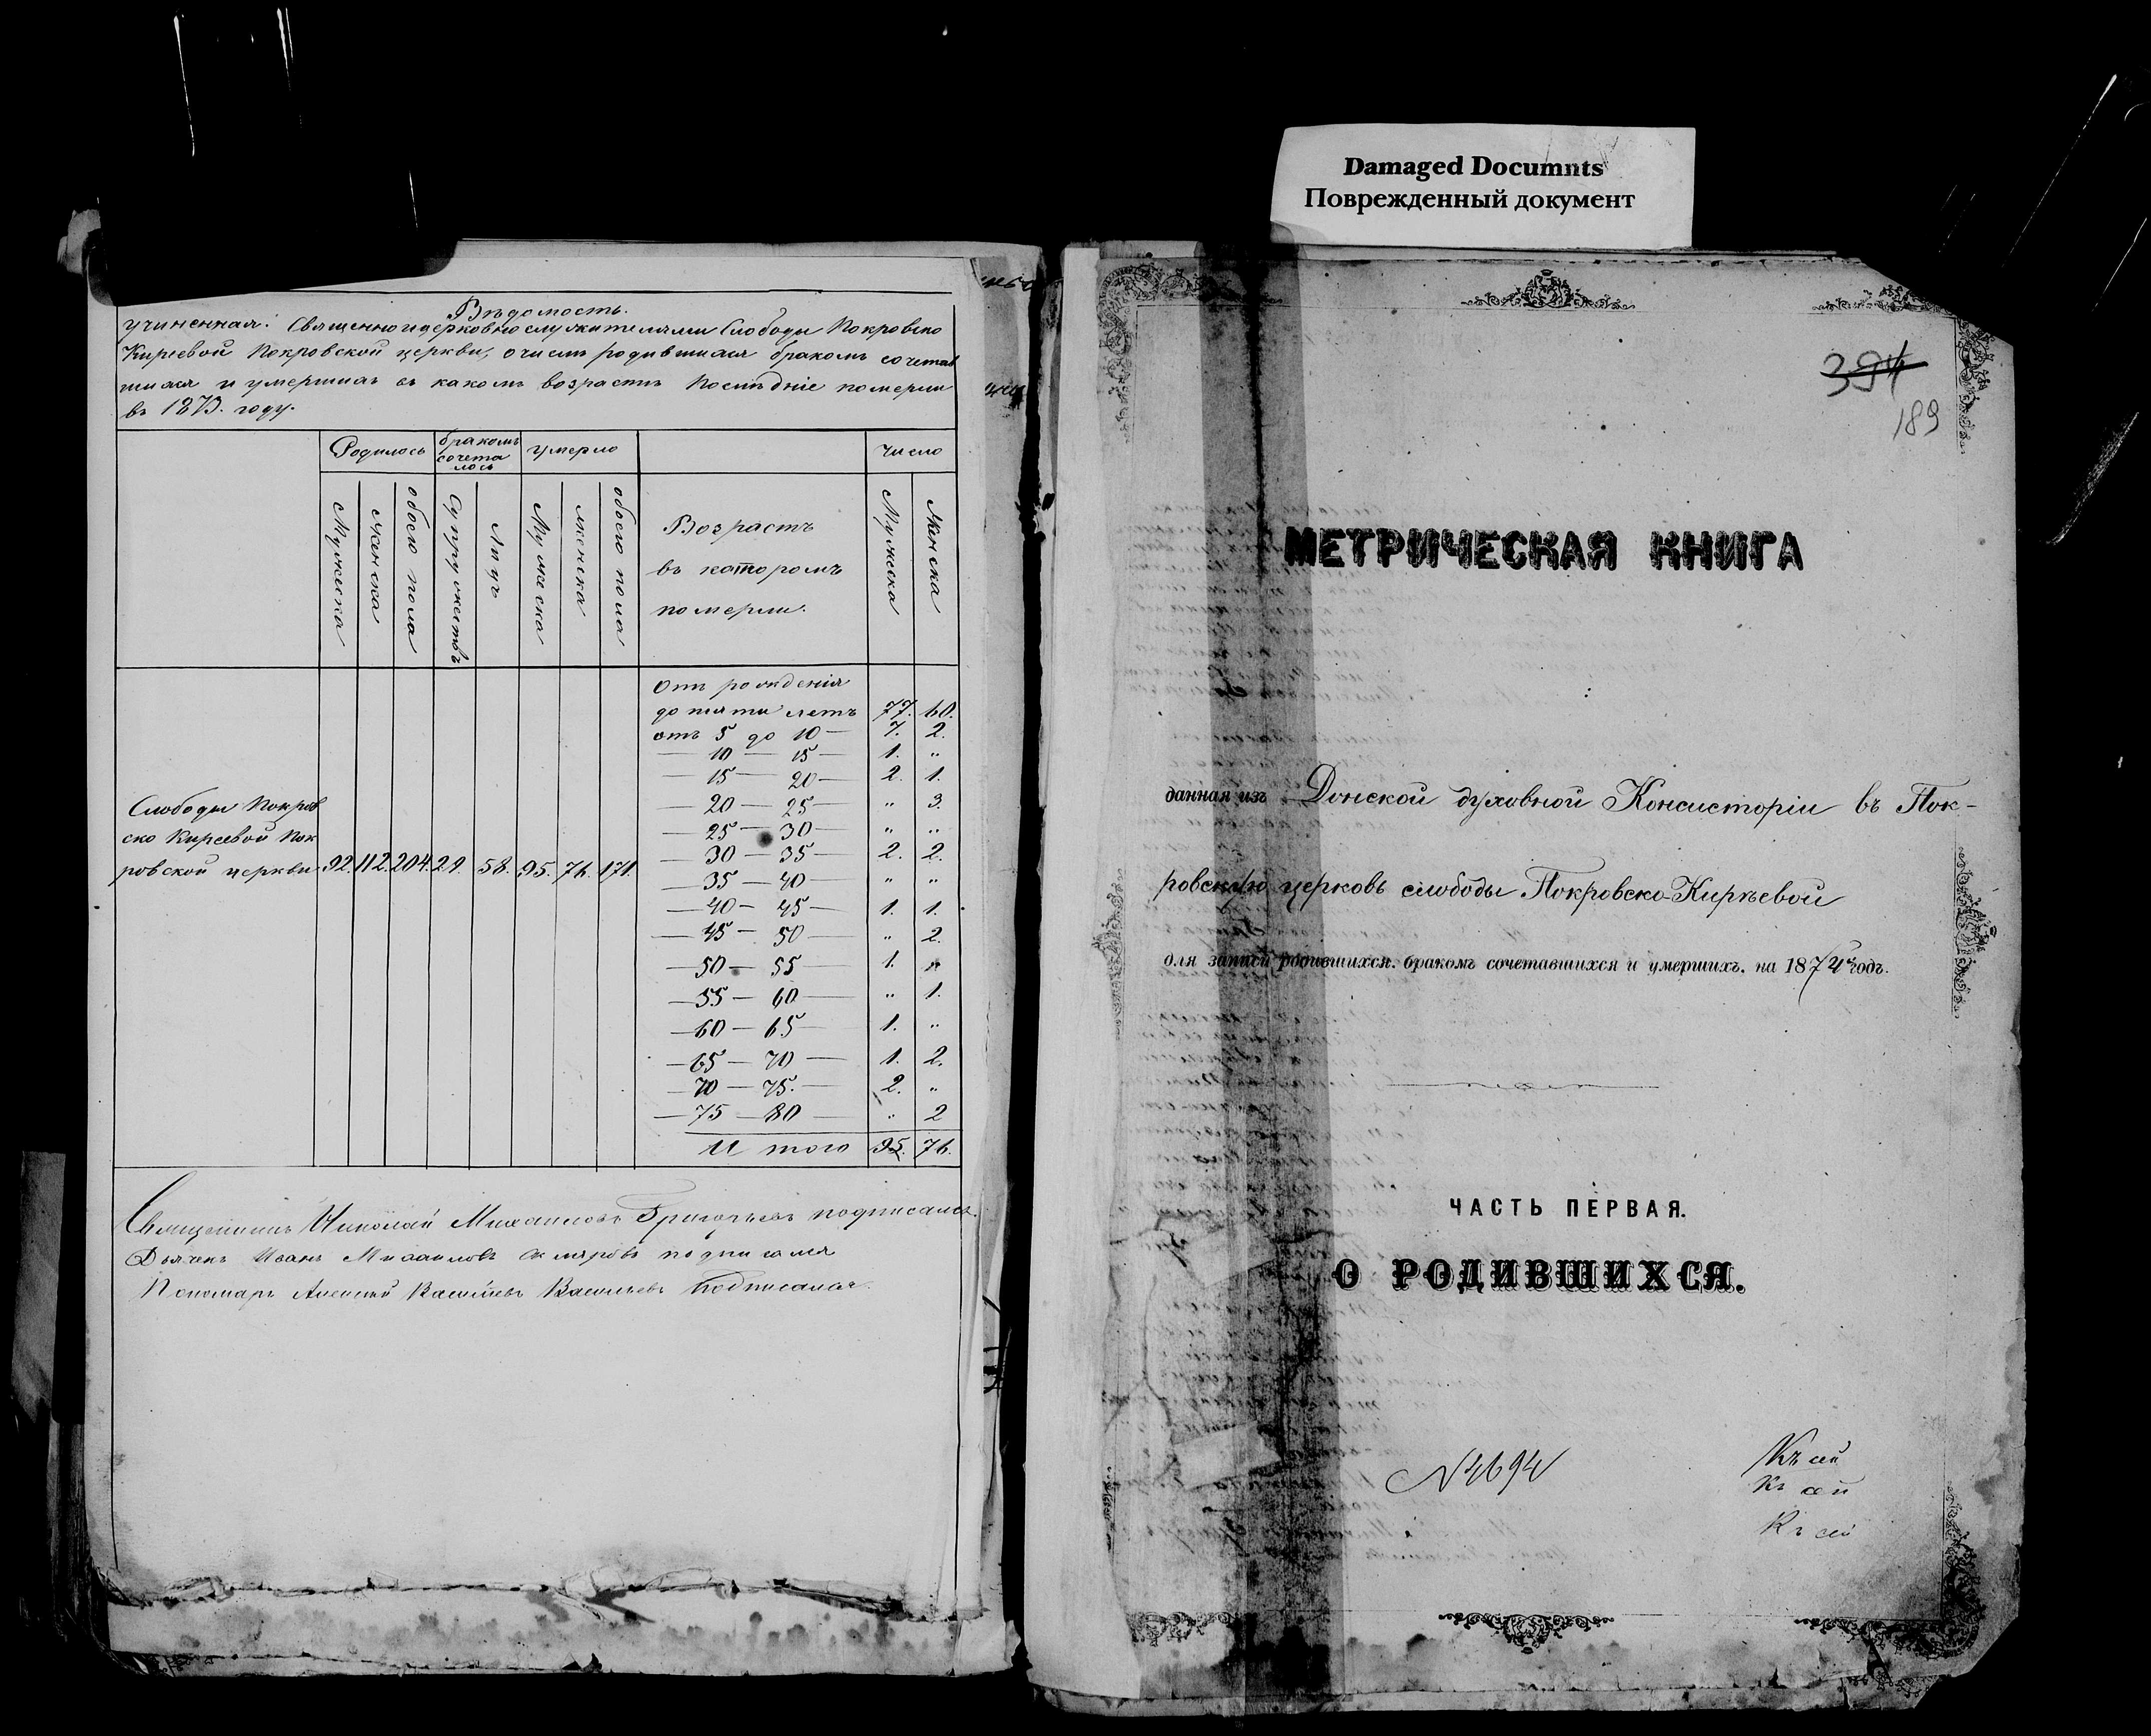 Damaged Documnts
Поврежденный документ
Вѣдомость.
учиненная: Священноицерковнослужителями Слободы Покровско
Киреевой Покровской церкви, очислѣ родившихся бракомъ сочетав
шихся и умершихъ въ какомъ возрастѣ послѣдніе померли
въ 1873. году.
Родилось
бракомъ сочета лось
умерло
Число
Мужеска
женска
обоего пола
Супружествъ
Лицъ
Мужеска
женска
обоего пола
Возрастъ
въ которомъ
померли.
Мужеска
Женска
Отъ рожденія
до пяти летъ 77. 60.
отъ 5 до 10 — 7. 2.
— 10 — 15 — 1. „
— 15 — 20 — 2. 1.
— 20 — 25 — „ 3.
— 25 — 30 — „ „
— 30 — 35 — 2. 2.
— 35 — 40 — „ „
— 40 — 45 — 1. 1.
— 45 — 50 — „ 2.
— 50 — 55 — 1. „
— 55 — 60 — „ 1.
— 60 — 65 — 1. „
— 65 — 70 — 1. 2.
— 70 — 75. — 2. „
— 75 — 80 — „ 2
Слободы Покров
ско Киреевой Пок
ровской церкви 92. 112. 204. 29. 58. 95. 76. 171.
И того 95. 76.
Священникъ Николай Михаиловъ Григорьевъ подписался.
Дьячекъ Иванъ Михаиловъ Скляровъ подписался
Пономарь Алексей Васильевъ Васильевъ подписался.
394
189
МЕТРИЧЕСКАЯ КНИГА
данная изъ Донской духовной Консисторіи въ Пок-
ровскую церковь слободы Покровско-Кирѣевой
для записи родившихся. бракомъ сочетавшихся и умершихъ. на 1874й годъ.
ЧАСТЬ ПЕРВАЯ.
О РОДИВШИХСЯ.
№ 4694
Къ ой
Къ ой
Къ ой